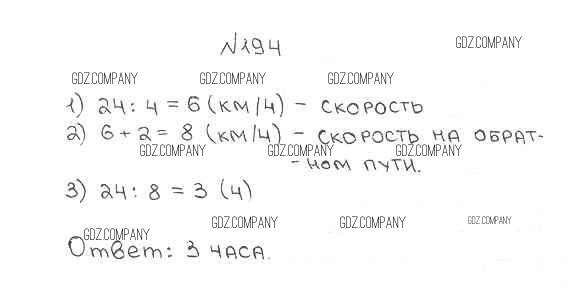 №194
GDZ.COMPANY
GDZ.COMPANY GDZ.COMPANY GDZ.COMPANY
1) 24 : 4 = 6 (км/ч) - скорость
2) 6 + 2 = 8 (км/ч) - скорость на обрат-
GDZ.COMPANY GDZ.COMPANY GDZ.COMPANY
- ном пути.
3) 24 : 8 = 3 (ч)
GDZ.COMPANY GDZ.COMPANY GDZ.COMPANY
GDZ.COMPANY
Ответ: 3 часа.